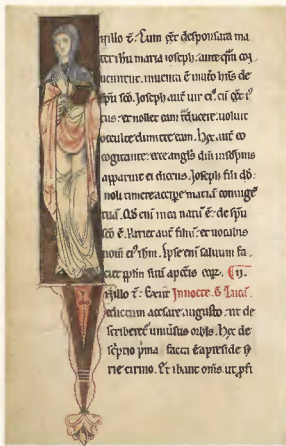 illo t̄: Cum eēt desponsata ma
ter ih̄u maria ioseph. ante q̄m con
uenirent. inuenta ē in utō h̄ns de
sp̄u sc̄o. Joseph aut̄ uir ei᷒ cū eēt i᷒
tus et nollet eam t̾ducere. uoluit
occulte dimitte eam. Hec aut̄ eo
cogitante. ecce angl̄s dn̄i in sōpnis
apparuit ei dicens. Joseph fili dd̄
noli timere accipe mariā coniugē
tuā. Q̄d enī in ea natū ē. de sp̄u
sc̄o ē. Pariet aut̄ filiū. et uocabis
nom̄ ei᷒ ih̄m. Ipse enī saluum fa
ciet pp̄lm suū a pccīs eoꝝ.
illo t̄: Exiit Luca
edictum a cesare augusto. ut de
scriberet uniuersus orbis. Hec de
sc̄ptio p̄ma facta ē a preside sy
rie cirino. Et ibant om̄s ut p̄fi